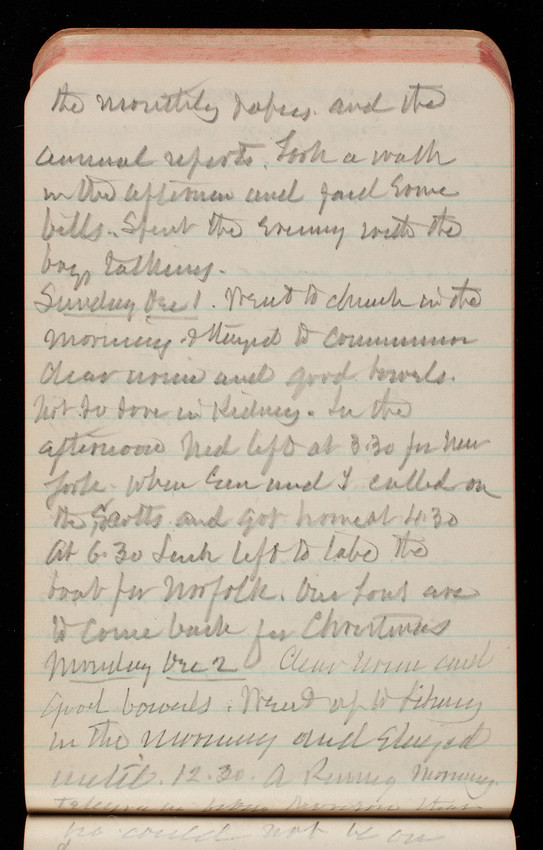 the monthly papers and the
annual reports. Took a walk
in the afternoon and paid some
bills. Spent the evening with the
boys talking.
Sunday Dec 1. Went to church in the
morning & stayed to communion
clear urine and good bowels.
Not so sore in Kidney. In the
afternoon Ned left at 3.30 for New
York when Eun and I called on
the Scotts and got home at 4.30
At 6.30 left to take the
boat for Norfolk. Our sons are
to come back for Christmas
Monday Dec 2 Clear urine and
good bowels. Went up to Library
in the morning and stayed
until 12.30. A Rainy morning
he could not be on